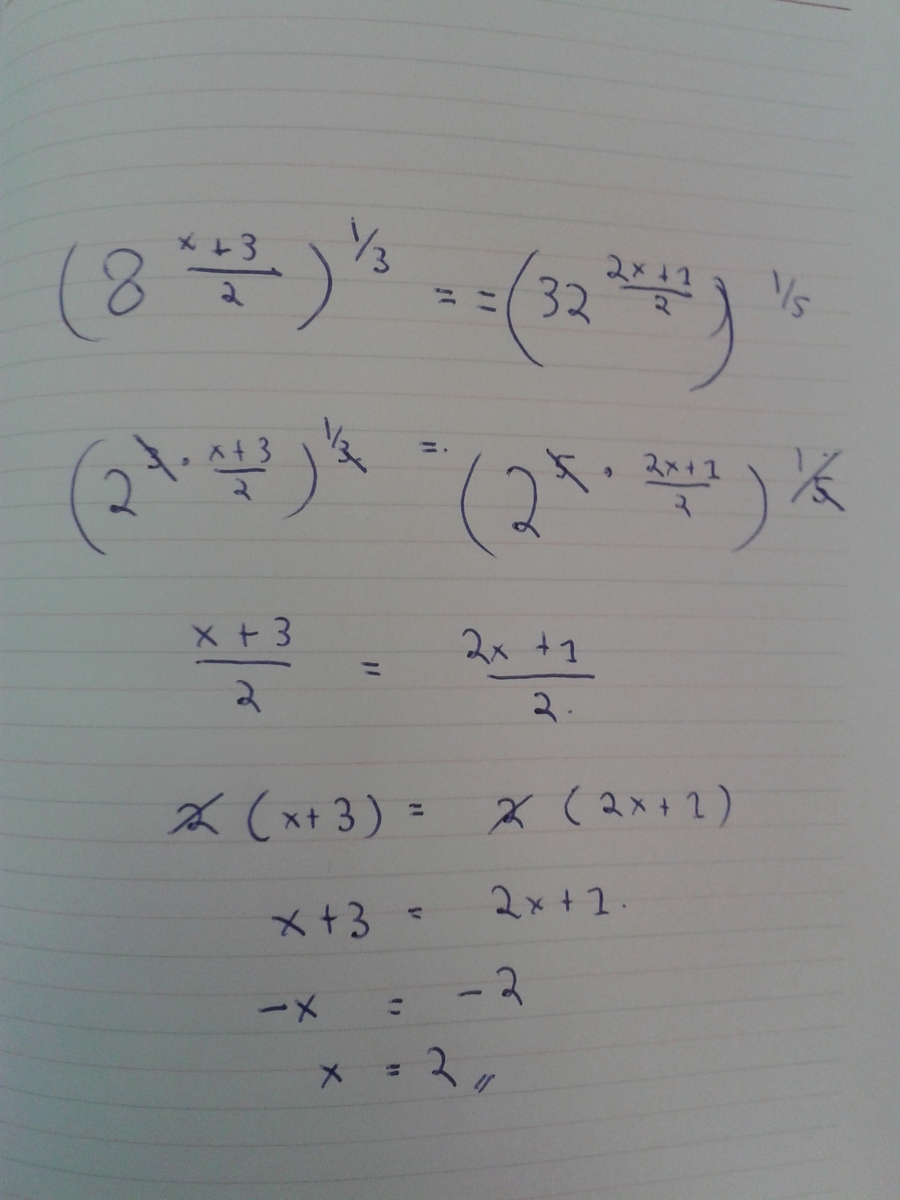 (8^((x+3)/2))^(1/3) = = (32^((2x+1)/2))^(1/5)
(2^(3·(x+3)/2))^(1/3) =. (2^(5·(2x+1)/2))^(1/5)
(x+3)/2 = (2x+1)/2.
2 (x+3) = 2 (2x+1)
x+3 = 2x+1.
-x = -2
x = 2 //